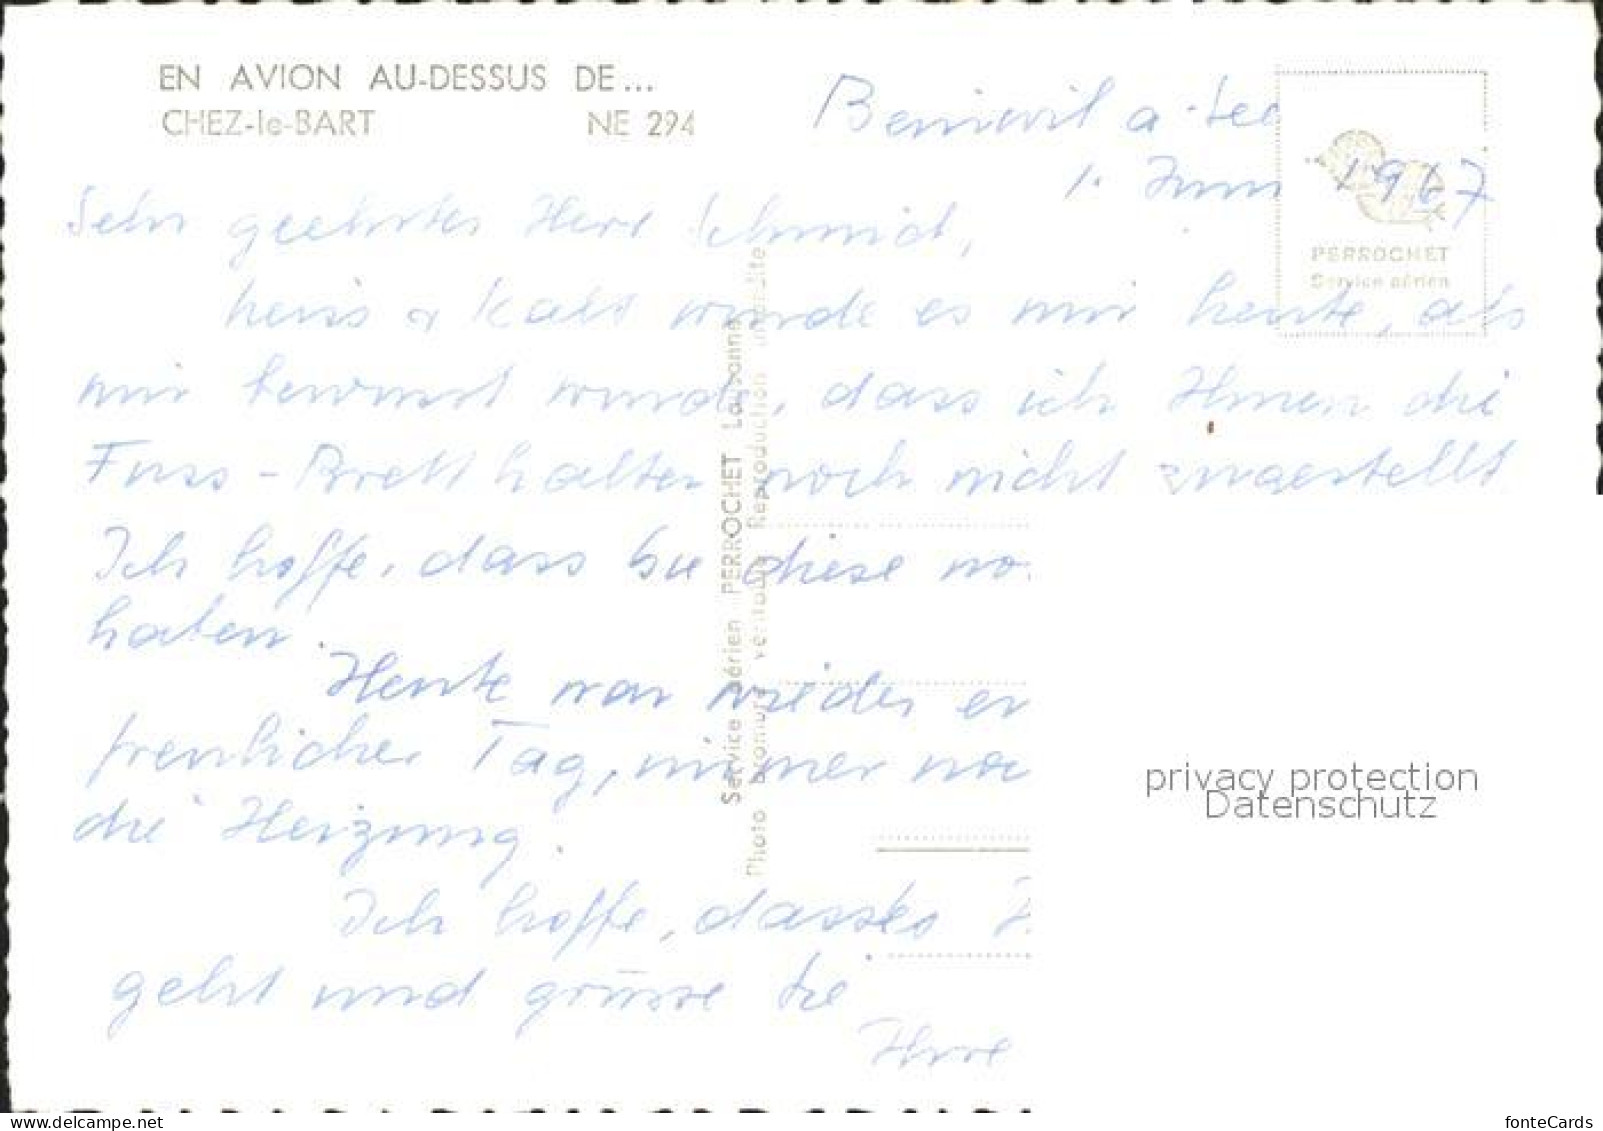 EN AVION AU-DESSUS DE...
CHEZ-le-BART NE 294
1. Juni 1967
PERROCHET
Service aérien
Sehr geehrter Herr Schmid,
heiss & kalt wurde es mir heute, als
mir bewusst wurde, dass ich Ihnen die
Fuss-Bretthalter noch nicht zugestellt
Ich hoffe, dass Sie diese no
haben.
Heute war wieder ein
freulicher Tag, immer noc
die Heizung.
Ich hoffe, dass es I
geht und grüsse Sie
Ihre
Service aérien PERROCHET Lausanne
Photo bromure véritable Reproduction interdite
privacy protection
Datenschutz
www.ansichtskartenversand.com
fonteCards